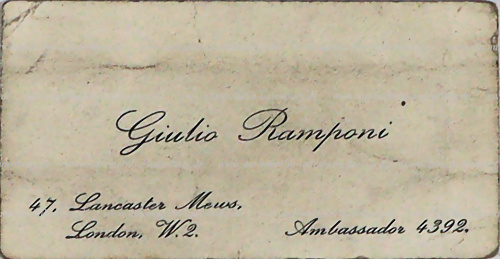 Giulio Ramponi
47, Lancaster Mews,
London, W.2.
Ambassador 4392.